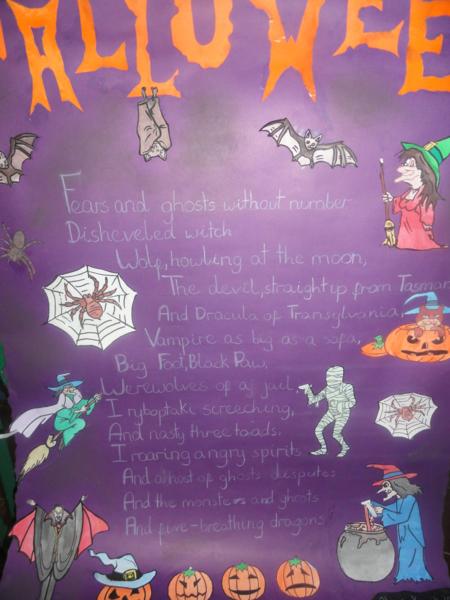 ALLOWEE
Fears and ghosts without number
Disheveled witch
Wolf, howling at the moon,
The devil, straight up from Tasman
And Dracula of Transylvania,
Vampire as big as a sofa,
Big Foot, Black Paw,
Werewolves of a jail
I ryboptaki screeching,
And nasty three toads.
I roaring angry spirits
And a host of ghosts desputes
And the monsters and ghosts
And five-breathing dragons